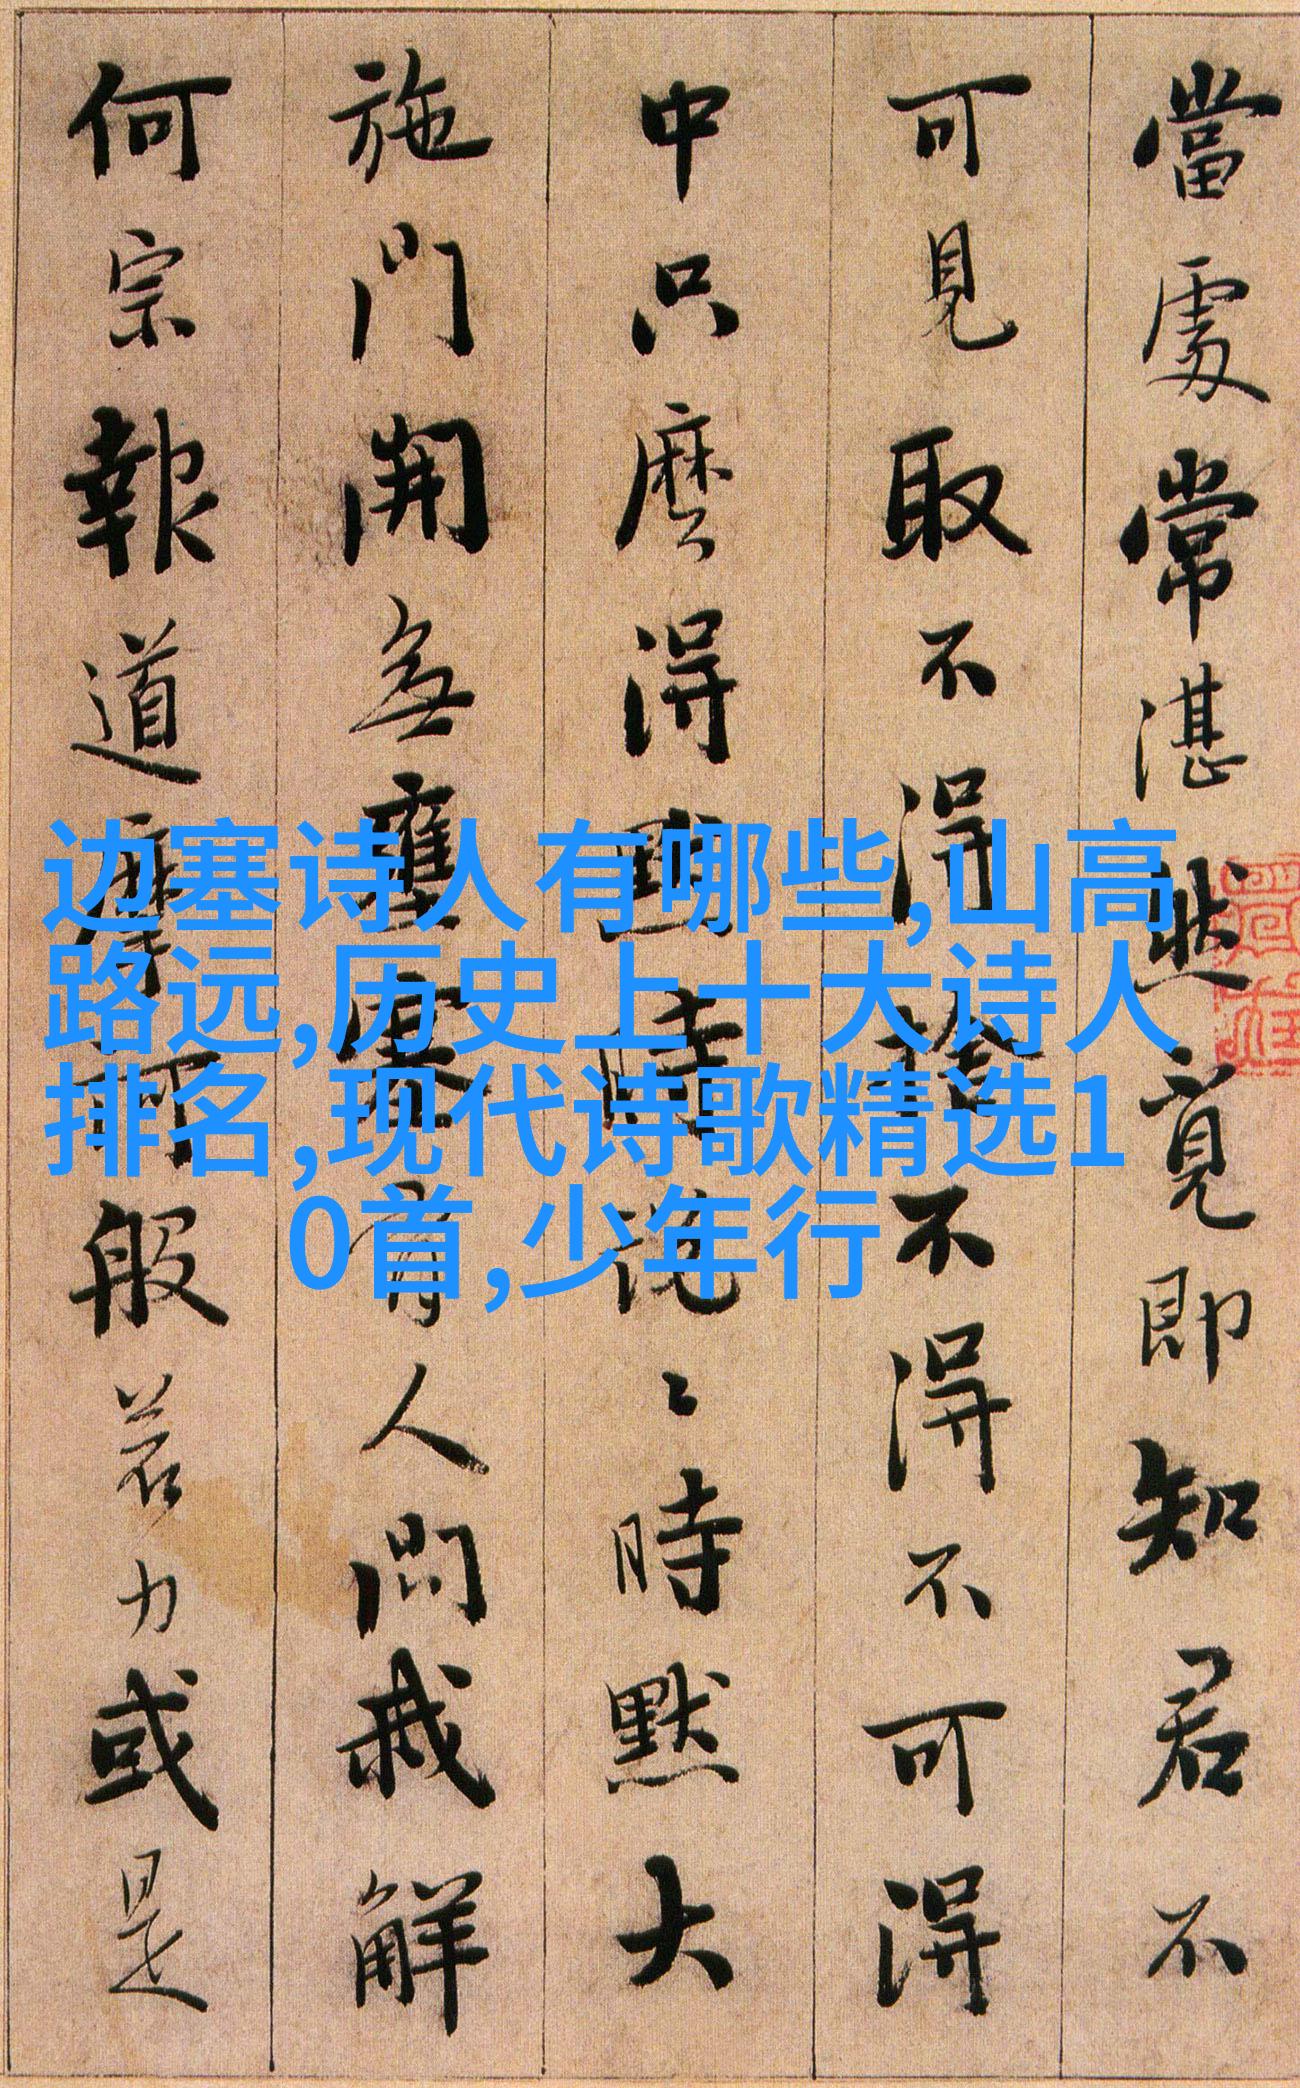 當處常湛然覓即知君不
可見取不得捨不得不可得
中只麼得默時說〻時默大
施門開無壅塞有人問我解
何宗報道摩訶般若力或是
边塞诗人有哪些,山高
路远,历史上十大诗人
排名,现代诗歌精选1
0首,少年行